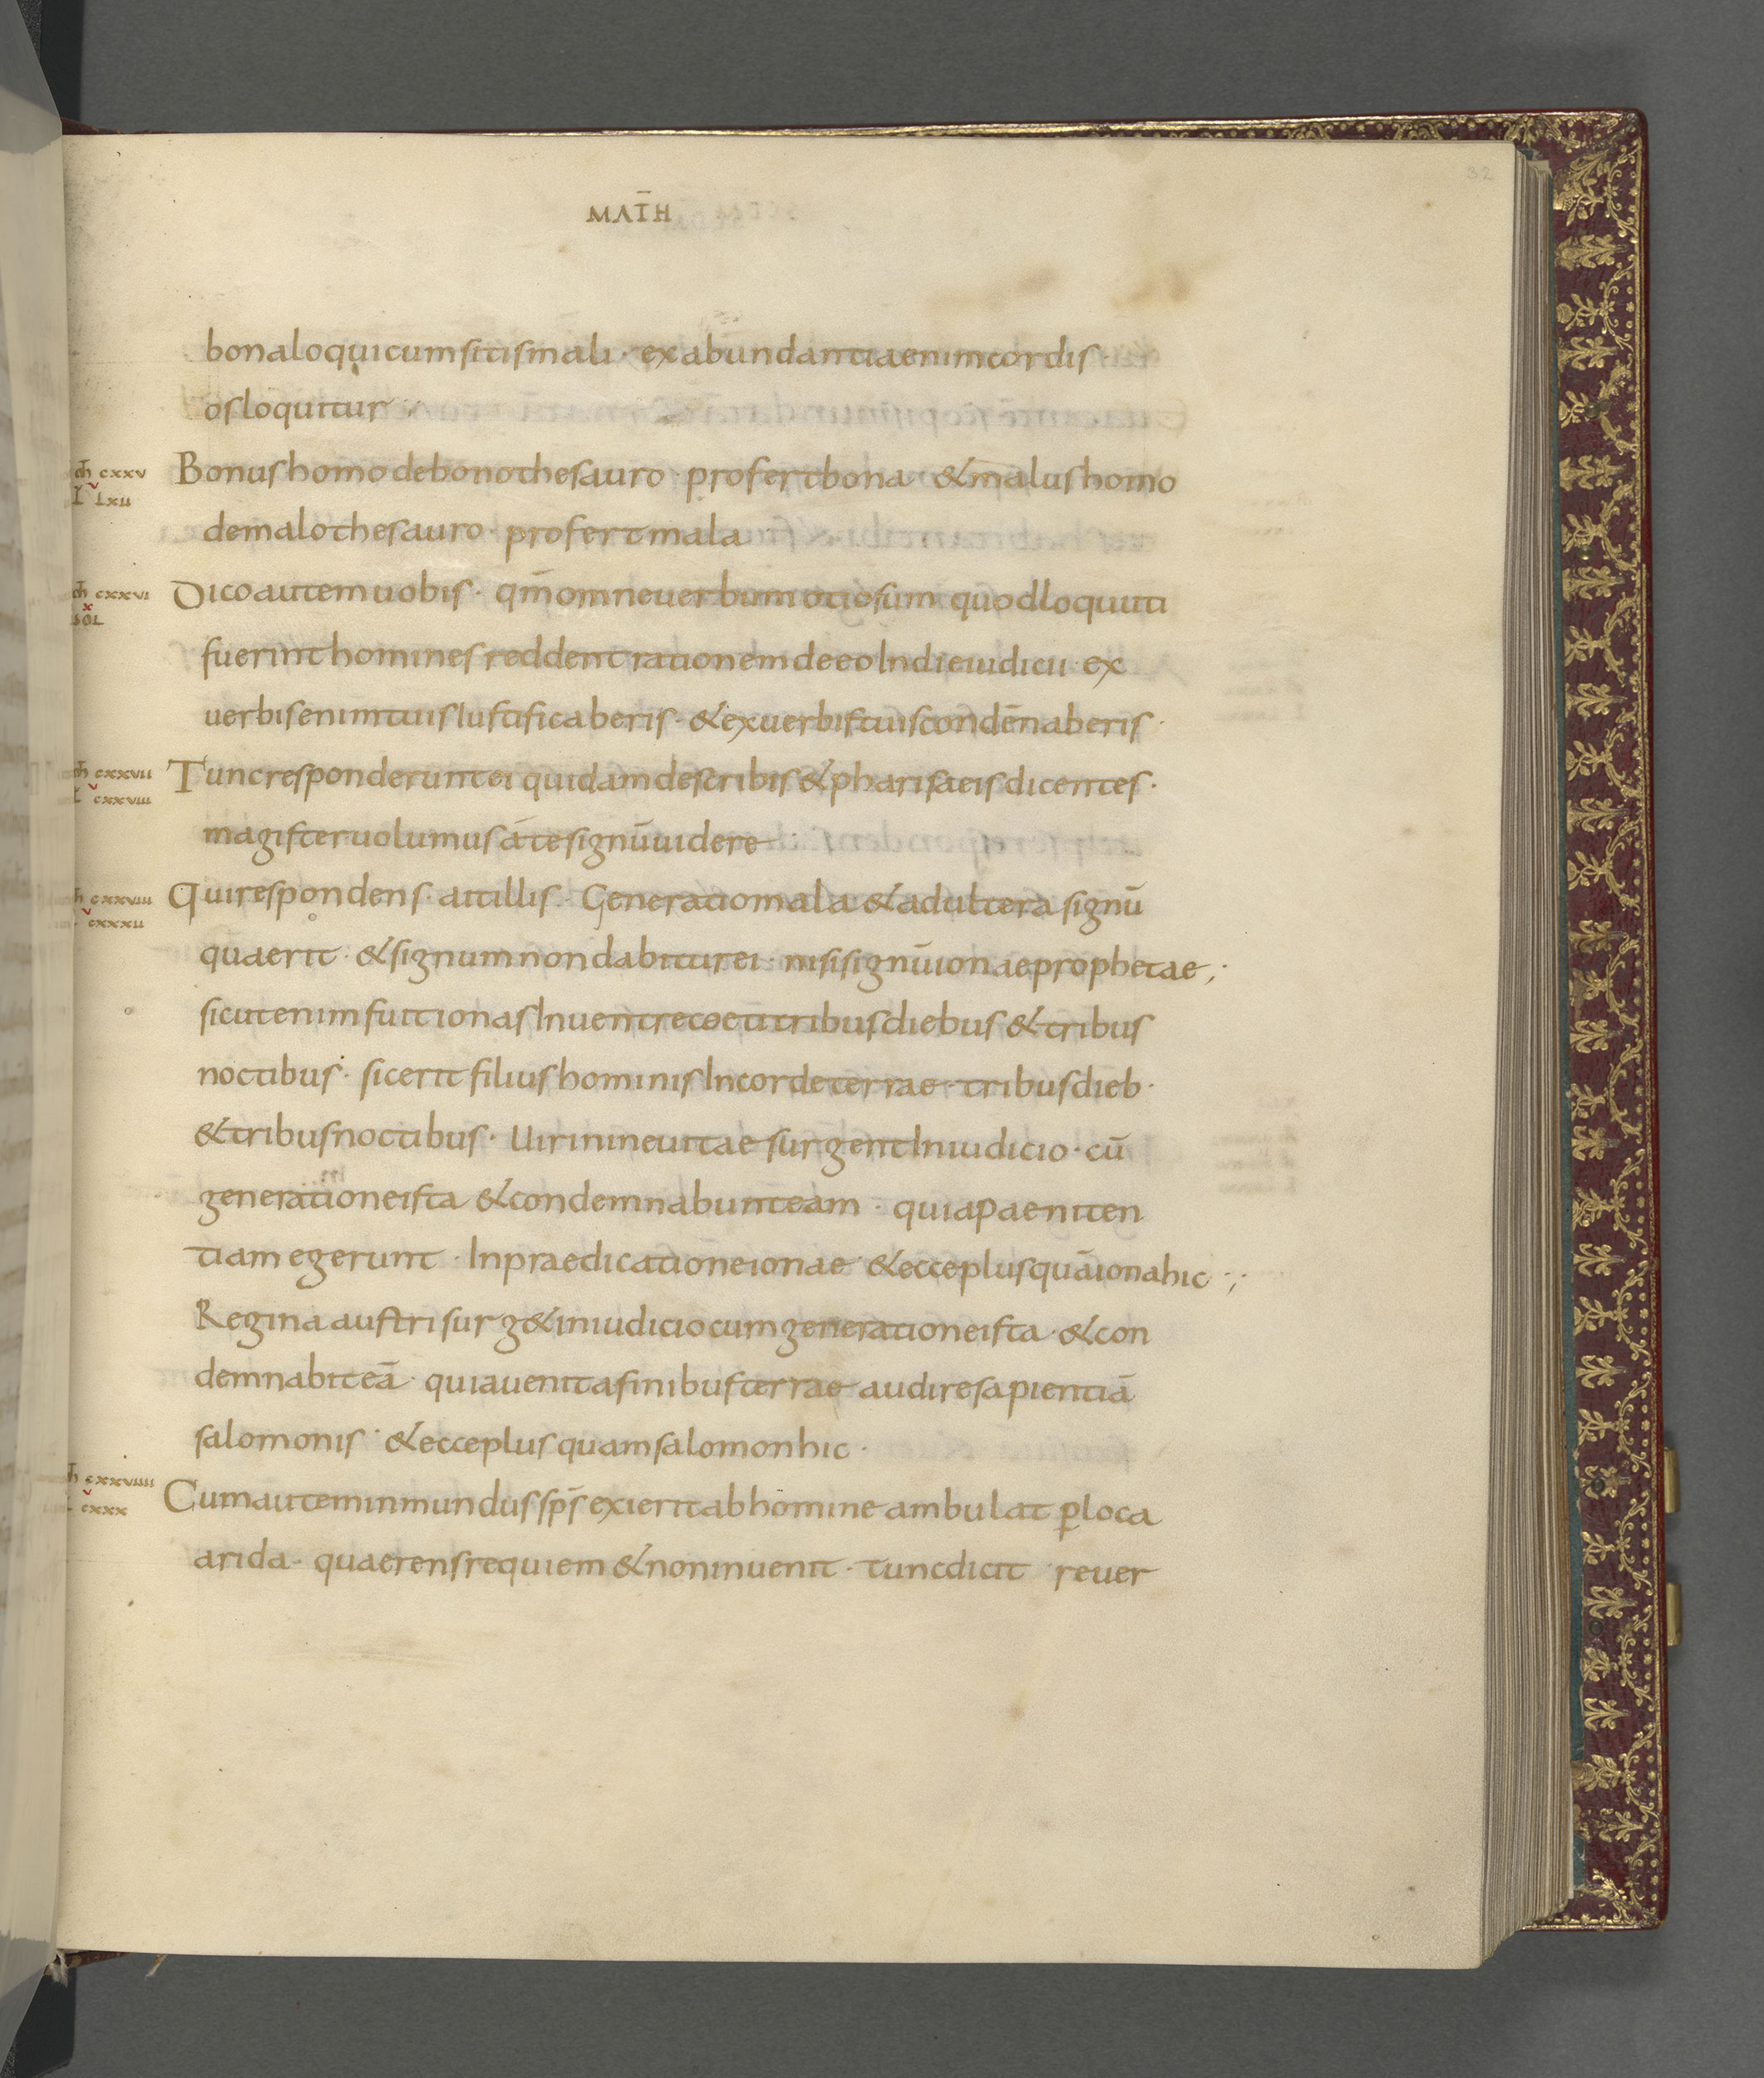 32
MAT̄H
bonaloquicumsitismali · exabundantiaenimcordis
osloquitur
m̄h cxxv
L̄ Lxii
Bonushomodebonothesauro · profertbona · &malushomo
demalothesauro · profertmala
m̄h cxxvi
x
sol
Dicoautemuobis · qm̄omneuerbumotiosum quodloquuti
fuerinthominesreddentrationemdeeoIndieiudicii · ex
uerbisenimtuisIustificaberis · &exuerbistuiscondēnaberis ·
m̄h cxxvii
L cxxviii
Tuncresponderuntei quidamdescribis&pharisaeisdicentes ·
magisteruolumusátesignūuidere
h cxxviii
cxxxii
Quirespondens · aitillis · Generatiomala&adultera signū
quaerit · &signumnondabiturei · nisisignūionaeprophetae ;
sicutenimfuitionasInuentrecoetitribusdiebus &tribus
noctibus · siceritfiliushominisIncordeterrae · tribusdieb ·
&tribusnoctibus · UirinineuitaesurgentIniudicio · cū
generationeista &condemnabunteam · quiapaeniten
tiamegerunt · Inpraedicationeionae &ecceplusquāionahic ;
Reginaaustrisurg&iniudiciocumgenerationeista · &con
demnabiteā · quiauenitafinibusterrae audiresapientiā
salomonis · &ecceplusquamsalomonhic ·
h cxxviiii
cxxx
Cumauteminmundussps̄exieritabhomineambulat ꝑloca
arida · quaerensrequiem&noninuenit · tuncdicit reuer